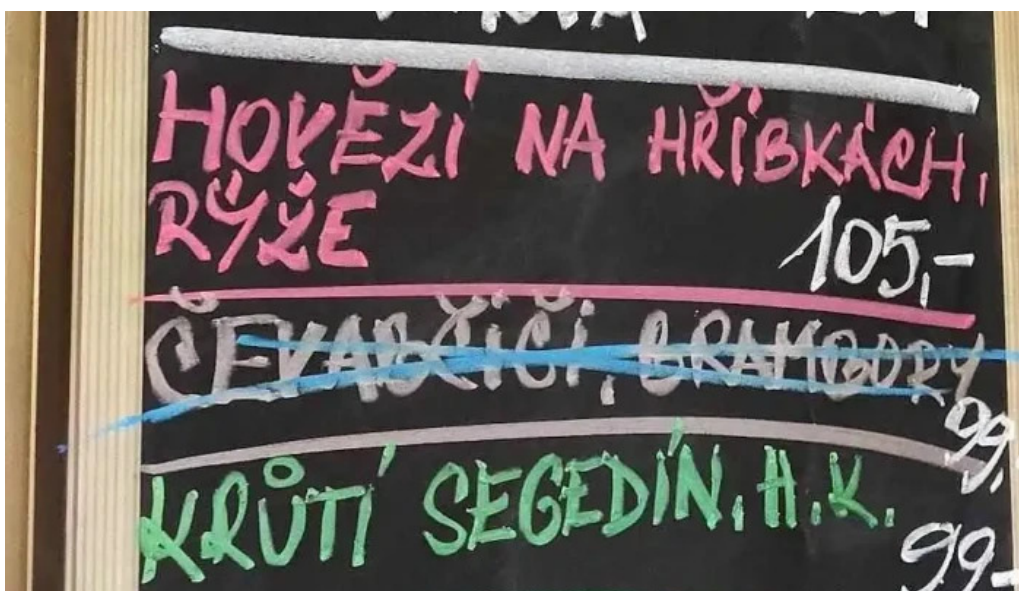 HOVĚZÍ NA HŘÍBKÁCH,
RÝŽE
105,-
ČEVABČIČI, BRAMBORY
99,
KRŮTÍ SEGEDÍN, H.K.
99-